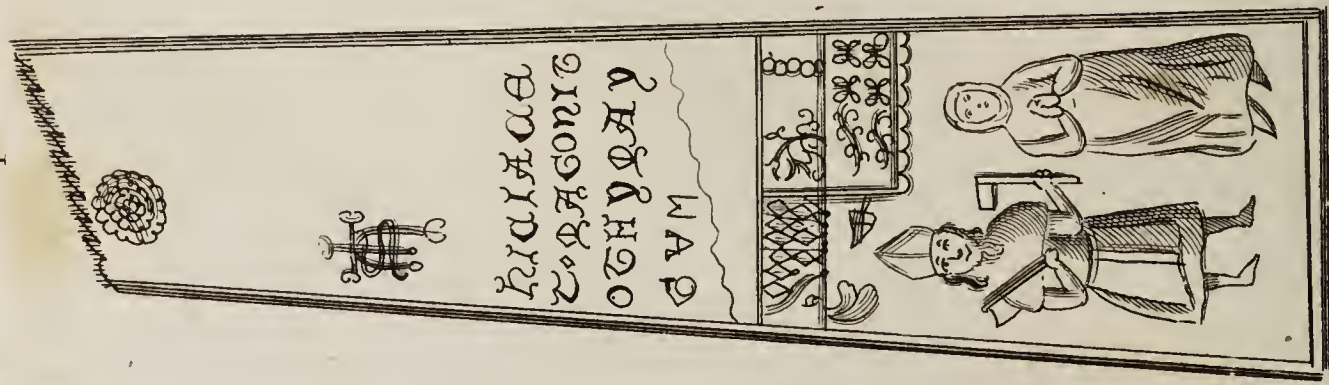 hICIACE
T·RAGONIT
OTHYRAY
GAM